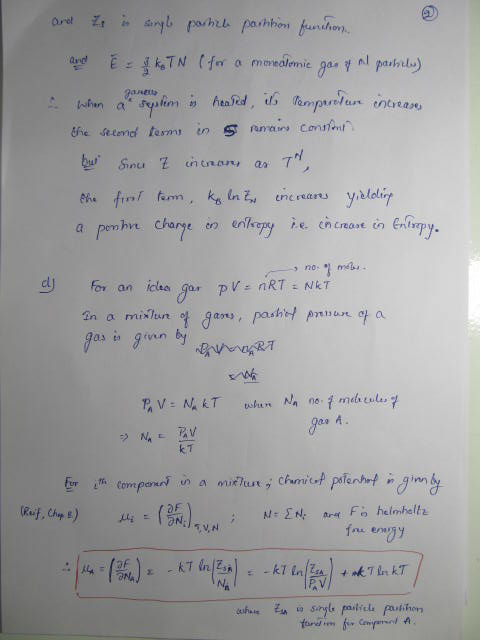 ②
and Z₁ is single particle partition function.
and Ē = 3/2 k_B T N (for a monoatomic gas of N particles)
∴ When a gaseous system is heated, its temperature increases
the second terms in S remains constant
but since Z increases as T^N,
the first term, k_B ln Z_N increases yielding
a positive change in entropy i.e. increase in Entropy.
no. of moles.
d) For an idea gas pV = nRT = NkT
In a mixture of gases, partial pressure of a
gas is given by
P_A V = n_A RT
P_A V = N_A kT where N_A no. of molecules of
gas A.
⇒ N_A = P_A V / kT
For ith component in a mixture, chemical potential is given by
(Reif, Chap. 8) μ_i = (∂F/∂N_i)_T,V,N ; N = ΣN_i and F is helmholtz
free energy
∴ μ_A = (∂F/∂N_A) = -kT ln(Z_SA/N_A) = -kT ln(Z_SA/P_A V) + kT ln kT
where Z_SA is single particle partition
function for component A.